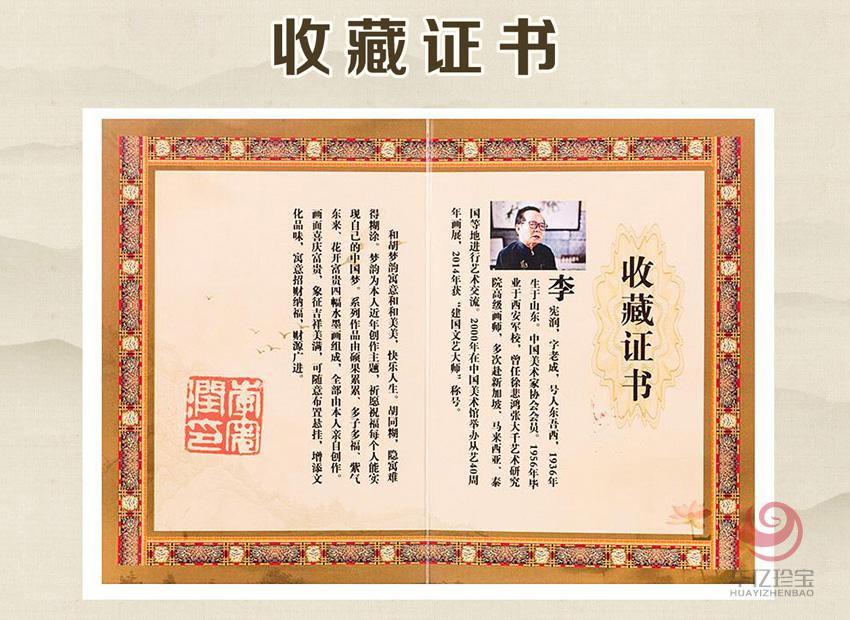 收藏证书
收藏证书
李宪润，字老成，号人东吾西，1936年
生于山东。中国美术家协会会员。1956年毕
业于西安军校，曾任徐悲鸿张大千艺术研究
院高级画师，多次赴新加坡、马来西亚、泰
国等地进行艺术交流。2000年在中国美术馆举办从艺40周
年画展，2014年获“建国文艺大师”称号。
和胡梦韵寓意和和美美，快乐人生。胡同糊，隐寓难
得糊涂。梦韵为本人近年创作主题，祈愿祝福每个人能实
现自己的中国梦。系列作品由硕果累累、多子多福、紫气
东来、花开富贵四幅水墨画组成，全部由本人亲自创作。
画面喜庆富贵，象征吉祥美满，可随意布置悬挂，增添文
化品味，寓意招财纳福，财源广进。
华亿珍宝
HUAYIZHENBAO